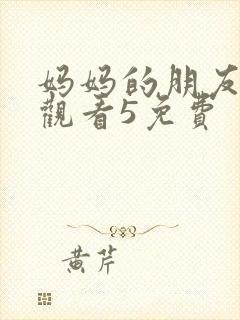 妈妈的朋友
觀看5免費
黄芹